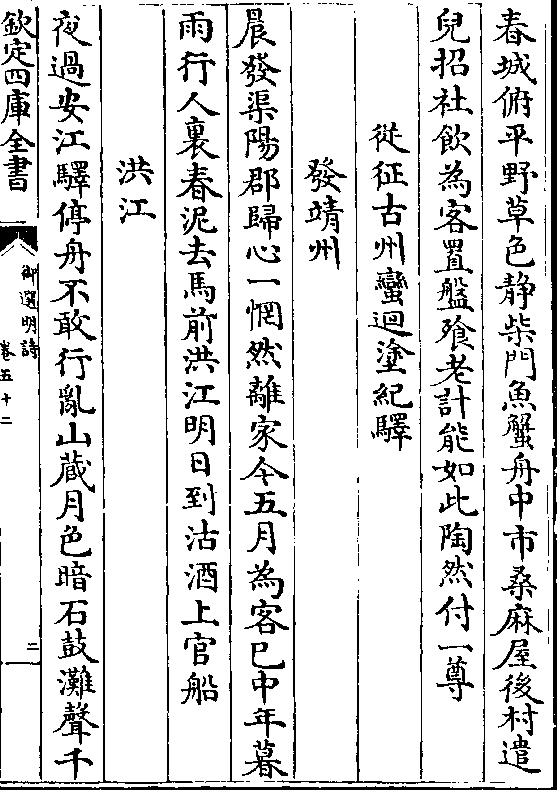 春城俯平野草色静柴門魚蟹舟中市桑麻屋後村遣
兒招社飲為客置盤飱老計能如此陶然付一尊
從征古州蠻迴塗紀驛
發靖州
晨發渠陽郡歸心一惘然離家今五月為客已中年暮
雨行人裏春泥去馬前洪江明日到沽酒上官船
洪江
夜過安江驛停舟不敢行亂山藏月色暗石鼓灘聲千
欽定四庫全書
御選明詩
卷五十二
二